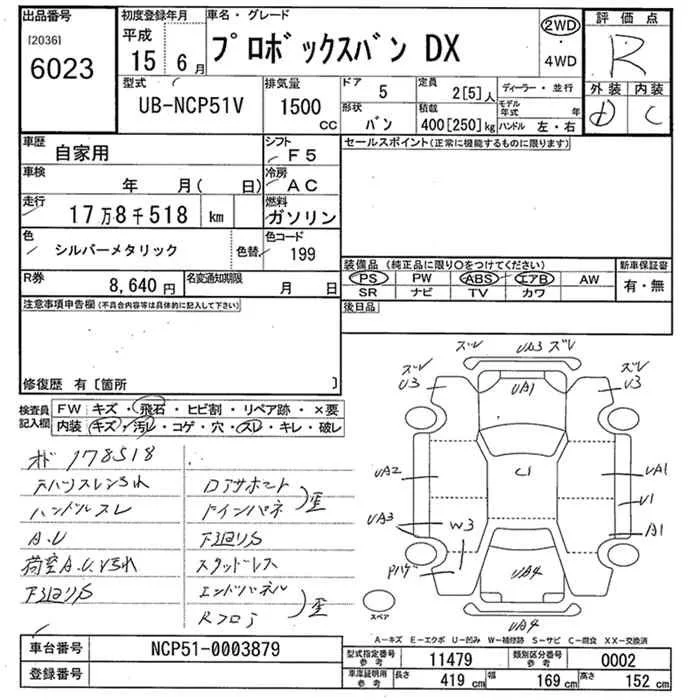 出品番号
[2036]
6023
初度登録年月
平成
15 年 6 月
車名・グレード
プロボックスバン DX
2WD
・
4WD
評価点
R
外装 内装
D C
型式
UB-NCP51V
排気量
1500
CC
ドア 5
形状 バン
定員 2[5]人
積載 400[250]kg
ディーラー・並行
モデル年式 年
ハンドル 左・右
車歴
自家用
シフト
F5
車検
年 月( 日)
冷房
AC
走行
17万8千518 km
燃料
ガソリン
色
シルバーメタリック
色替
色コード
199
R券
8,640 円
名変通知期限
月 日
セールスポイント(正常に機能するものに限ります)
装備品(純正品に限り○をつけてください)
PS PW ABS エアB AW
SR ナビ TV カワ
新車保証書
有・無
後日品
注意事項申告欄(不具合内容等は具体的に記入して下さい)
修復歴 有〔箇所 〕
検査員記入欄
FW キズ・飛石・ヒビ割・リペア跡・×要
内装 キズ・汚レ・コゲ・穴・スレ・キレ・破レ
178518
ハンドルスレ
A.U
下廻りS
ロアサポート
ドインパネ
歪
下廻りS
スタッドレス
エンドパネル
Rフロア
歪
ズレ UA3 ズレ
ズレ
U3
UA1
ズレ
U3
UA2
C1
UA1
U1
UA3
W3
A1
Pハゲ
UA4
UA4
スペア
A－キズ E－エクボ U－凹み W－補修跡 S－サビ C－腐食 XX－交換済
車台番号
NCP51-0003879
登録番号
型式指定番号
参考
11479
類別区分番号
参考
0002
車庫証明用
参考
長さ 419 cm
幅 169 cm
高さ 152 cm